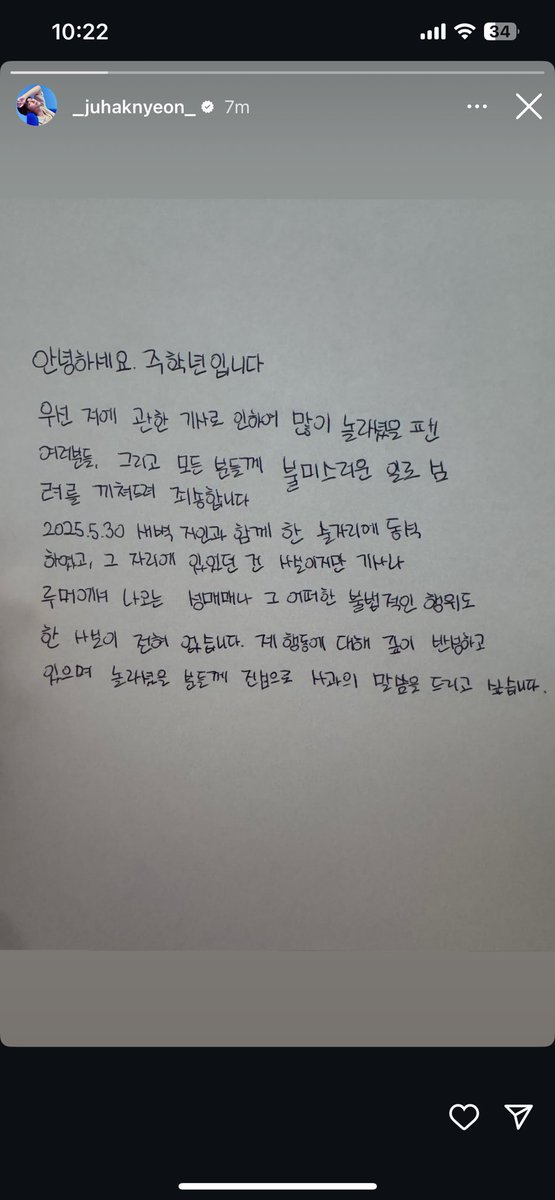 10:22
34
_juhaknyeon_ 7m
안녕하세요. 주학년입니다
우선 저에 관한 기사로 인하여 많이 놀라셨을 팬
여러분들, 그리고 모든 분들께 불미스러운 일로 심
려를 끼쳐드려 죄송합니다
2025.5.30 새벽 지인과 함께 한 술자리에 동석
하였고, 그 자리에 있었던 건 사실이지만 기사나
루머에서 나오는 성매매나 그 어떠한 불법적인 행위도
한 사실이 전혀 없습니다. 제 행동에 대해 깊이 반성하고
있으며 놀라셨을 분들께 진심으로 사과의 말씀을 드리고 싶습니다.